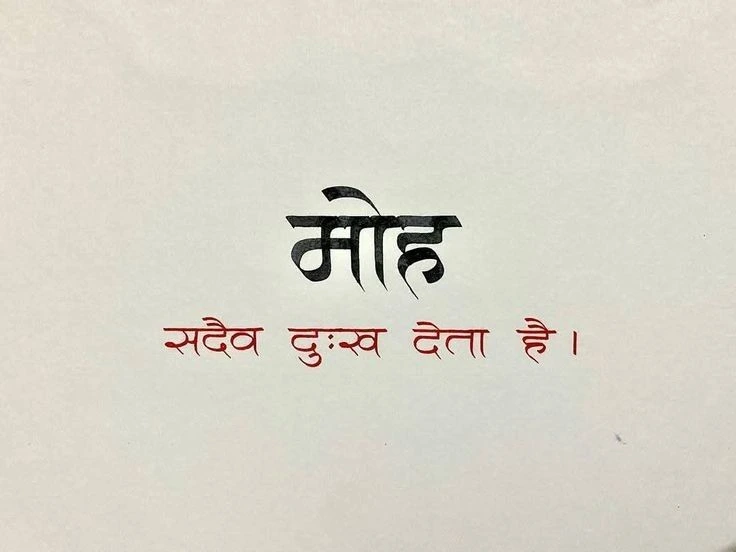 मोह
सदैव दुःख देता है।